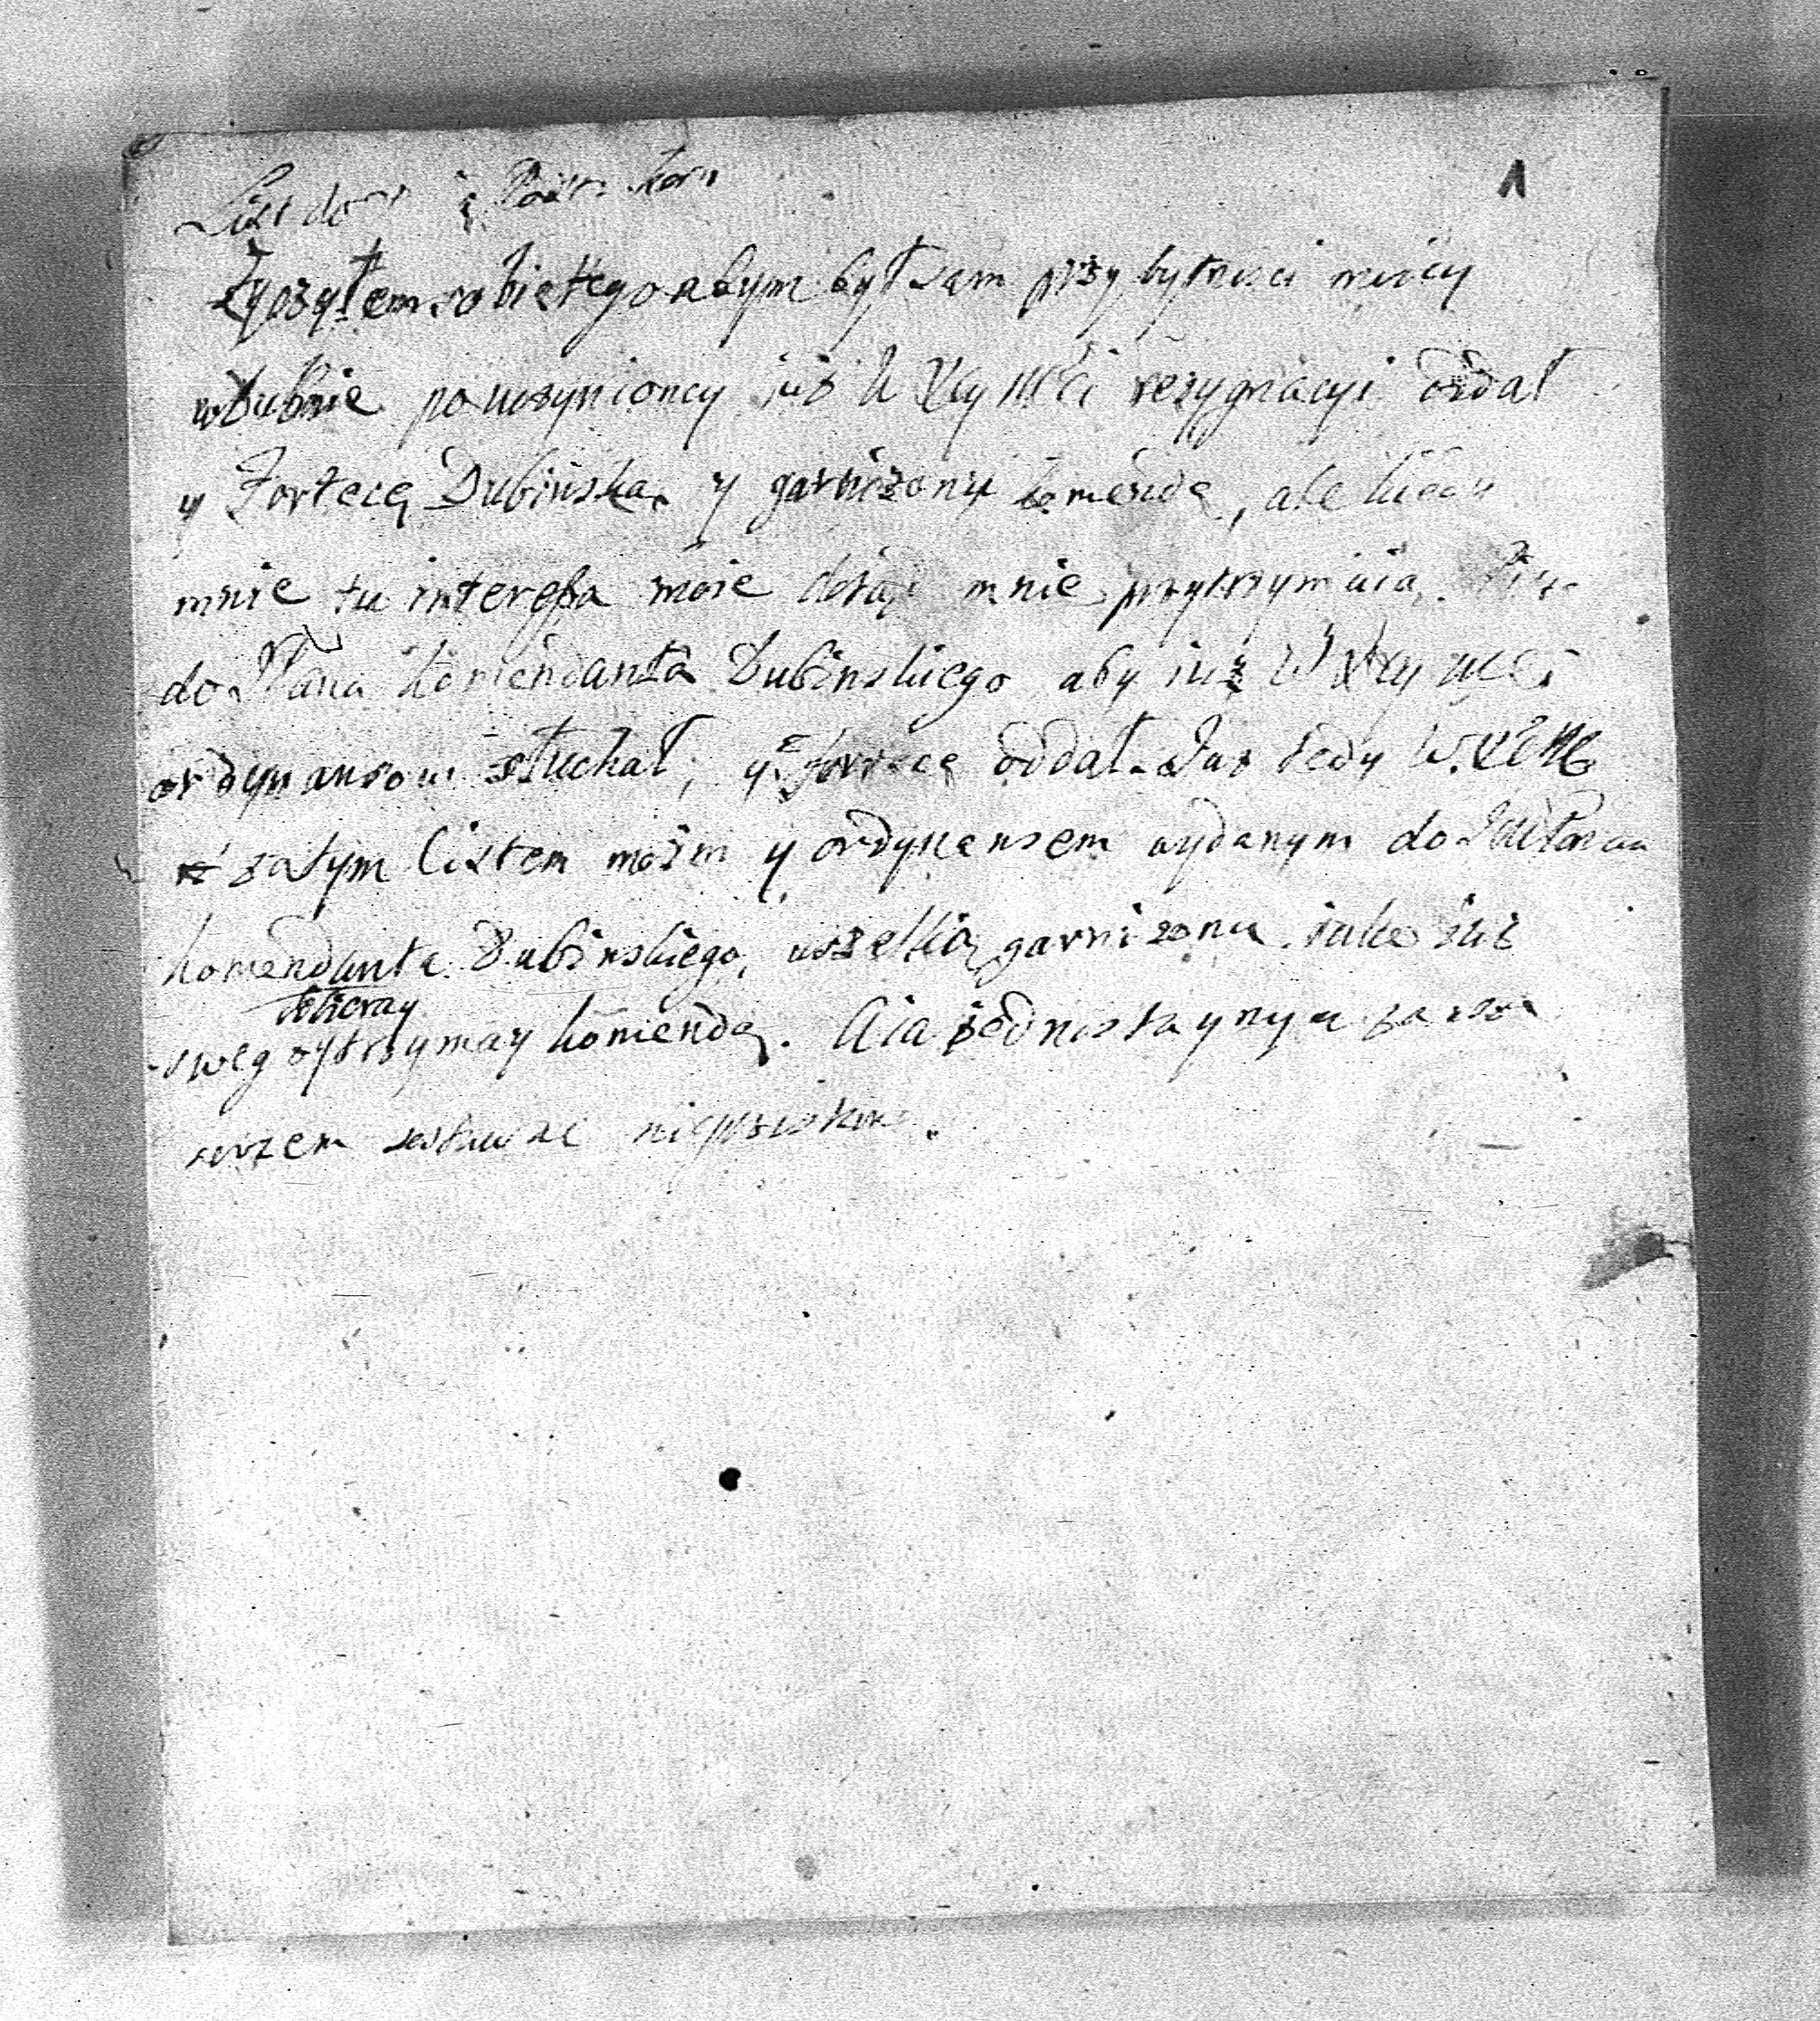 List do
Życzyłem sobie tego abym był sam przy bytnosci moiey
w Dubnie po uczynioney iuż W Xcy Mći rezygnacyi oddał
y Fortecę Dubinską y garnizonu komędę, ale kiedy
mnie tu interessa moie mnie przytrzymuią.
do Pana Komendanta Dubinskiego aby iuż W Xcy Mći
ordynansow słuchał, y Fortecę oddał. Już tedy W. XC Mć
za tym listem moim y ordynansem wydanym do
Komendanta Dubinskiego, wszelką garnizonu iako iuż
swego trzymay komendę. A ia iednostaynym
sercem